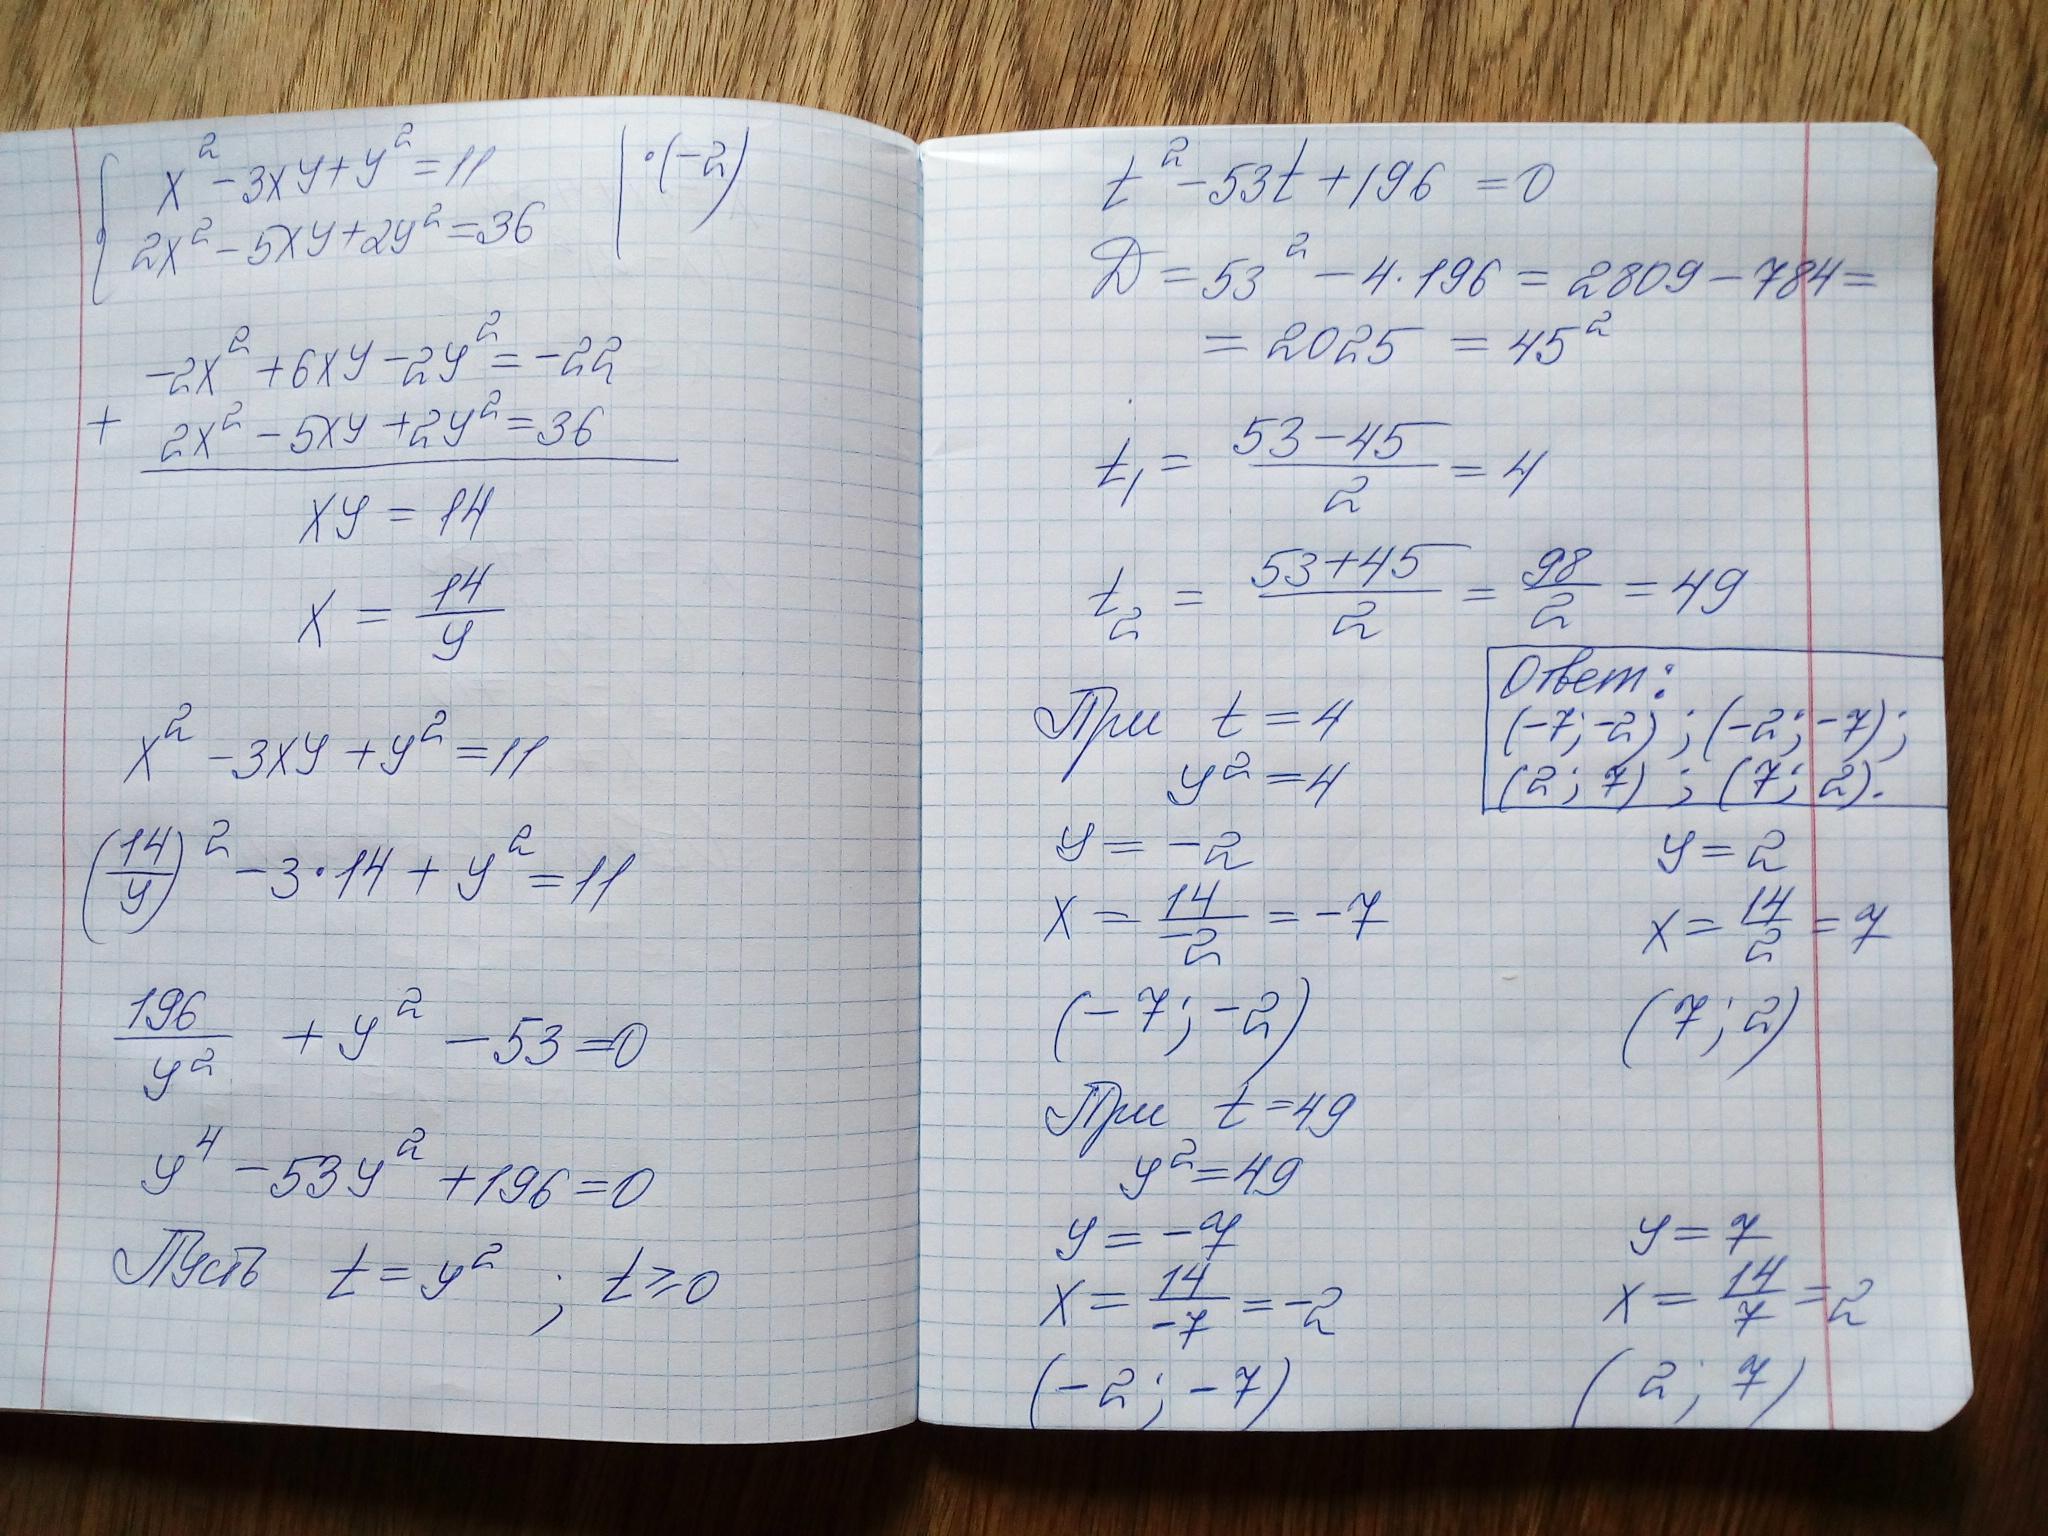 { x² - 3xy + y² = 11 | · (-2)
2x² - 5xy + 2y² = 36
-2x² + 6xy - 2y² = -22
+
2x² - 5xy + 2y² = 36
xy = 14
x = 14/y
x² - 3xy + y² = 11
(14/y)² - 3 · 14 + y² = 11
196/y² + y² - 53 = 0
y⁴ - 53y² + 196 = 0
Пусть t = y² ; t ≥ 0
t² - 53t + 196 = 0
Д = 53² - 4 · 196 = 2809 - 784 =
= 2025 = 45²
t₁ = (53 - 45)/2 = 4
t₂ = (53 + 45)/2 = 98/2 = 49
Ответ:
(-7; -2) ; (-2; -7);
(2; 7) ; (7; 2).
При t = 4
y² = 4
y = -2
x = 14/-2 = -7
(-7; -2)
y = 2
x = 14/2 = 7
(7; 2)
При t = 49
y² = 49
y = -7
x = 14/-7 = -2
(-2; -7)
y = 7
x = 14/7 = 2
(2; 7)